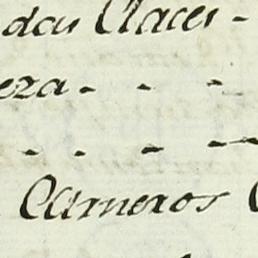 das Claces -
eza - - -
- - - -
Carneros